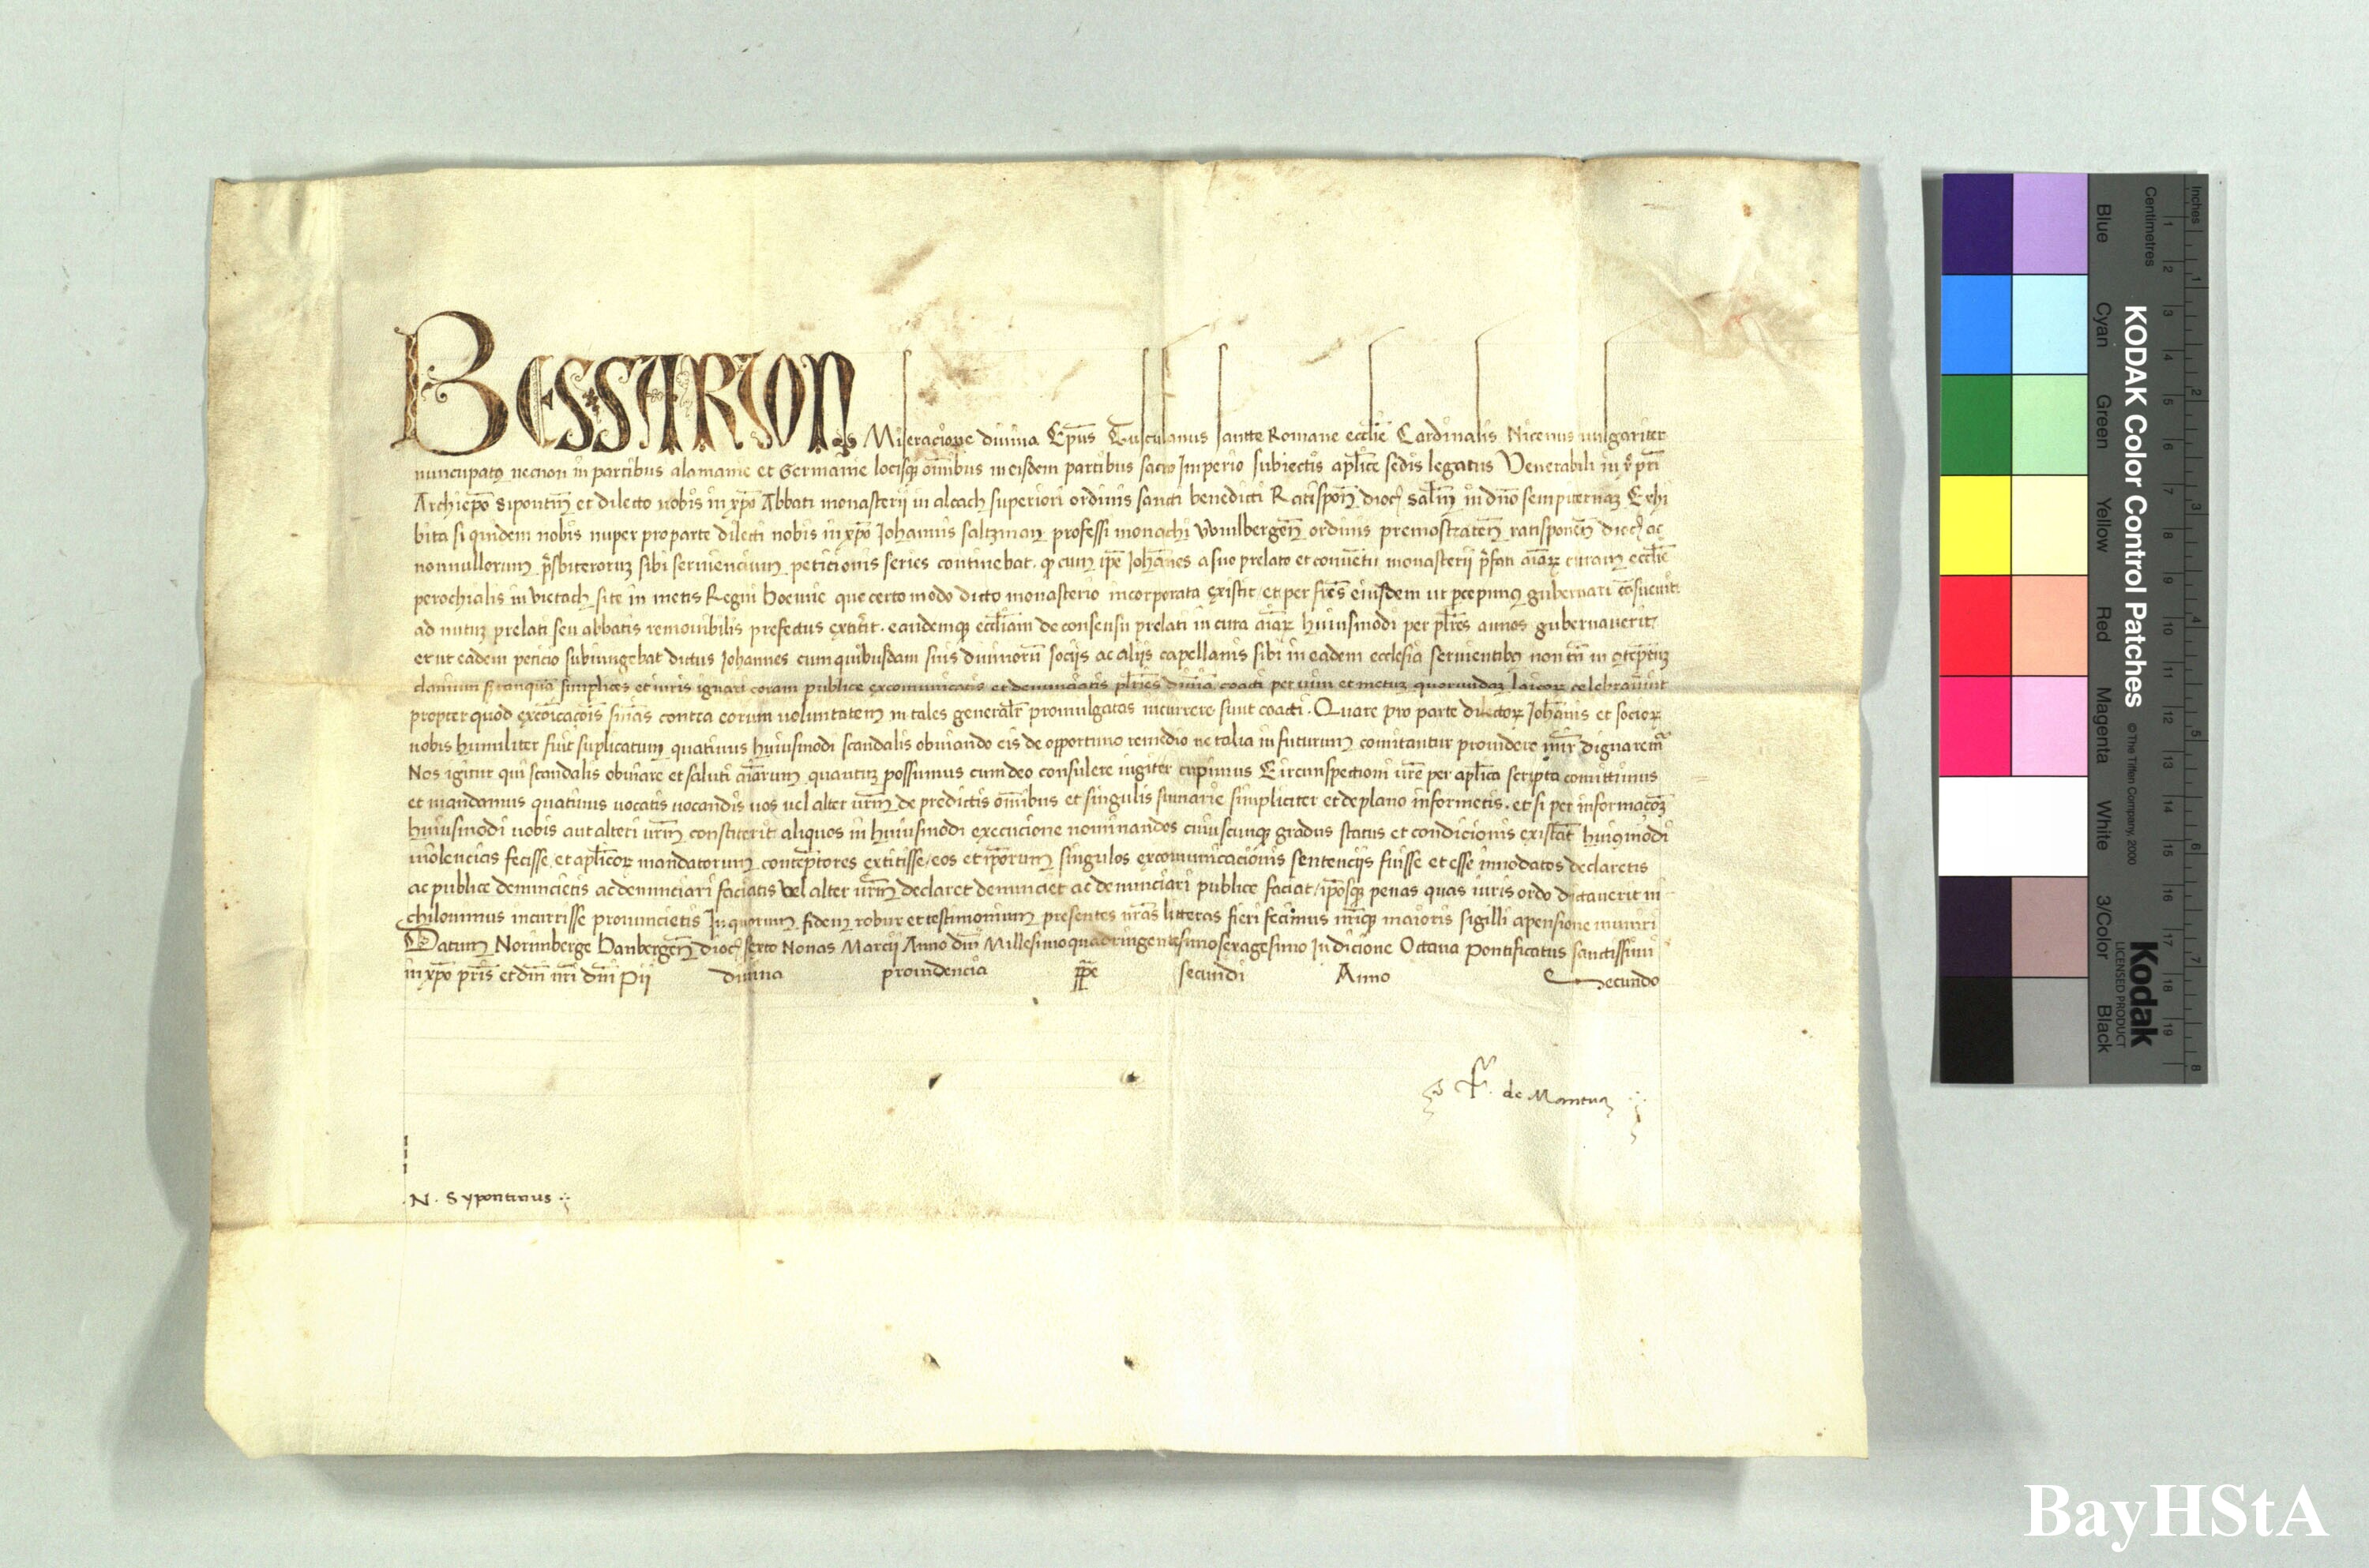 BESSARION Miseracione divina Ep̄us Tusculanus sancte Romane eccl̄ie Cardinalis Nicenus uulgariter
nuncupatꝰ necnon in partibus alamanie et Germanie locisqꝫ om̄ibus in eisdem partibus sacro Imperio subiectis apl̄ice sedis legatus Venerabili in xp̄o pr̄i
Archiep̄o Sipontin̄ et dilecto nobis in xp̄o Abbati monasterij in alcach superiori ordinis sancti benedicti Ratispon̄ dioc̄ sal̄m in dn̄o sempiternaꝫ Exhi
bita si quidem nobis nuper pro parte dilecti nobis in xp̄o Iohannis saltzman professi monachi ordinis premostraten̄ ratisponen̄ dioc̄ ac
nonnullorum p̄sbiteroruꝫ sibi seruiencium peticionis series continebat. qꝫ cum ip̄e Ioh̄anes a suo prelato et conuētu monasterij p̄fati aīaꝝ curam eccl̄ie
perochialis in vietach site in metis Regni boemie que certo modo dicto monasterio incorporata existit / et per fr̄es eiusdem ut p̄cepimꝰ gubernari cōsueuit
ad nutuꝫ prelati seu abbatis remouibilis prefectus extitit. eandemqꝫ eccl̄iam de consensu prelati in cura aīaꝝ huiusmodi per pl̄res annos gubernauerit /
et ut eadem peticio subiungebat dictus Iohannes cum quibusdam suis diuinorū socijs ac alijs capellanis sibi in eadem ecclesia seruientibꝰ non tn̄ in ꝯtēptuꝫ
clauium sꝫ tanquā simplices et iuris ignari coram publice excomunicatis et denunciatis pl̄ries diuina coacti per uim et metuꝫ quorundaꝫ laicoꝝ celebrauīnt
propter quod exc̄oicacōis sn̄ias contra eorum uoluntatem in tales general̄r promulgatas incurrere sunt coacti. Quare pro parte dictoꝝ Ioh̄anis et socioꝝ
nobis humiliter fuit suplicatum quatinus huiusmodi scandalis obuiando eis de opportuno remedio ne talia in futurum comitantur prouidere mīr dignarem̄
Nos igitur qui scandalis obuiare et saluti aīarum quantuꝫ possumus cum deo consulere iugiter cupimus Circunspectioni ur̄e per apl̄ica scripta comittimus
et mandamus quatinus uocatis uocandis uos uel alter ur̄m de predictis om̄ibus et singulis sumarie simpliciter et de plano informetis. et si per informacōꝫ
huiusmodi uobis aut alteri ur̄m constiterit aliquos in huiusmodi execucione nominandos cuiuscunqꝫ gradus status et condicionis existāt huiꝰmodi
uiolencias fecisse, et apl̄icoꝝ mandatorum contēptores extitisse, eos et ip̄orum singulos excomunicacionis sentencijs fuisse et esse innodatos declaretis
ac publice denuncietis ac denunciari faciatis vel alter ur̄m declaret denunciet ac denunciari publice faciat / ip̄osqꝫ penas quas iuris ordo dictauerit ni-
chilominus incurrisse pronuncietis In quorum fidem robur et testimonium presentes nr̄as litteras fieri fecimus nr̄iqꝫ maioris sigilli apensione muniri
Datum Norimberge banbergen̄ dioc̄ sexto Nonas Marcij Anno dn̄i Millesimoquadringentesimosexagesimo Indicione Octaua Pontificatus sanctissimi
in xp̄o pr̄is et dn̄i nr̄i dn̄i Pij diuina prouidencia pp̄e secundi Anno Secundo
F. de Mantua
N. Sypontinus
BayHStA
KODAK Color Control Patches
© The Tiffen Company, 2000
Kodak
LICENSED PRODUCT
Inches 1 2 3 4 5 6 7 8
Centimetres 1 2 3 4 5 6 7 8 9 10 11 12 13 14 15 16 17 18 19
Blue Cyan Green Yellow Red Magenta White 3/Color Black